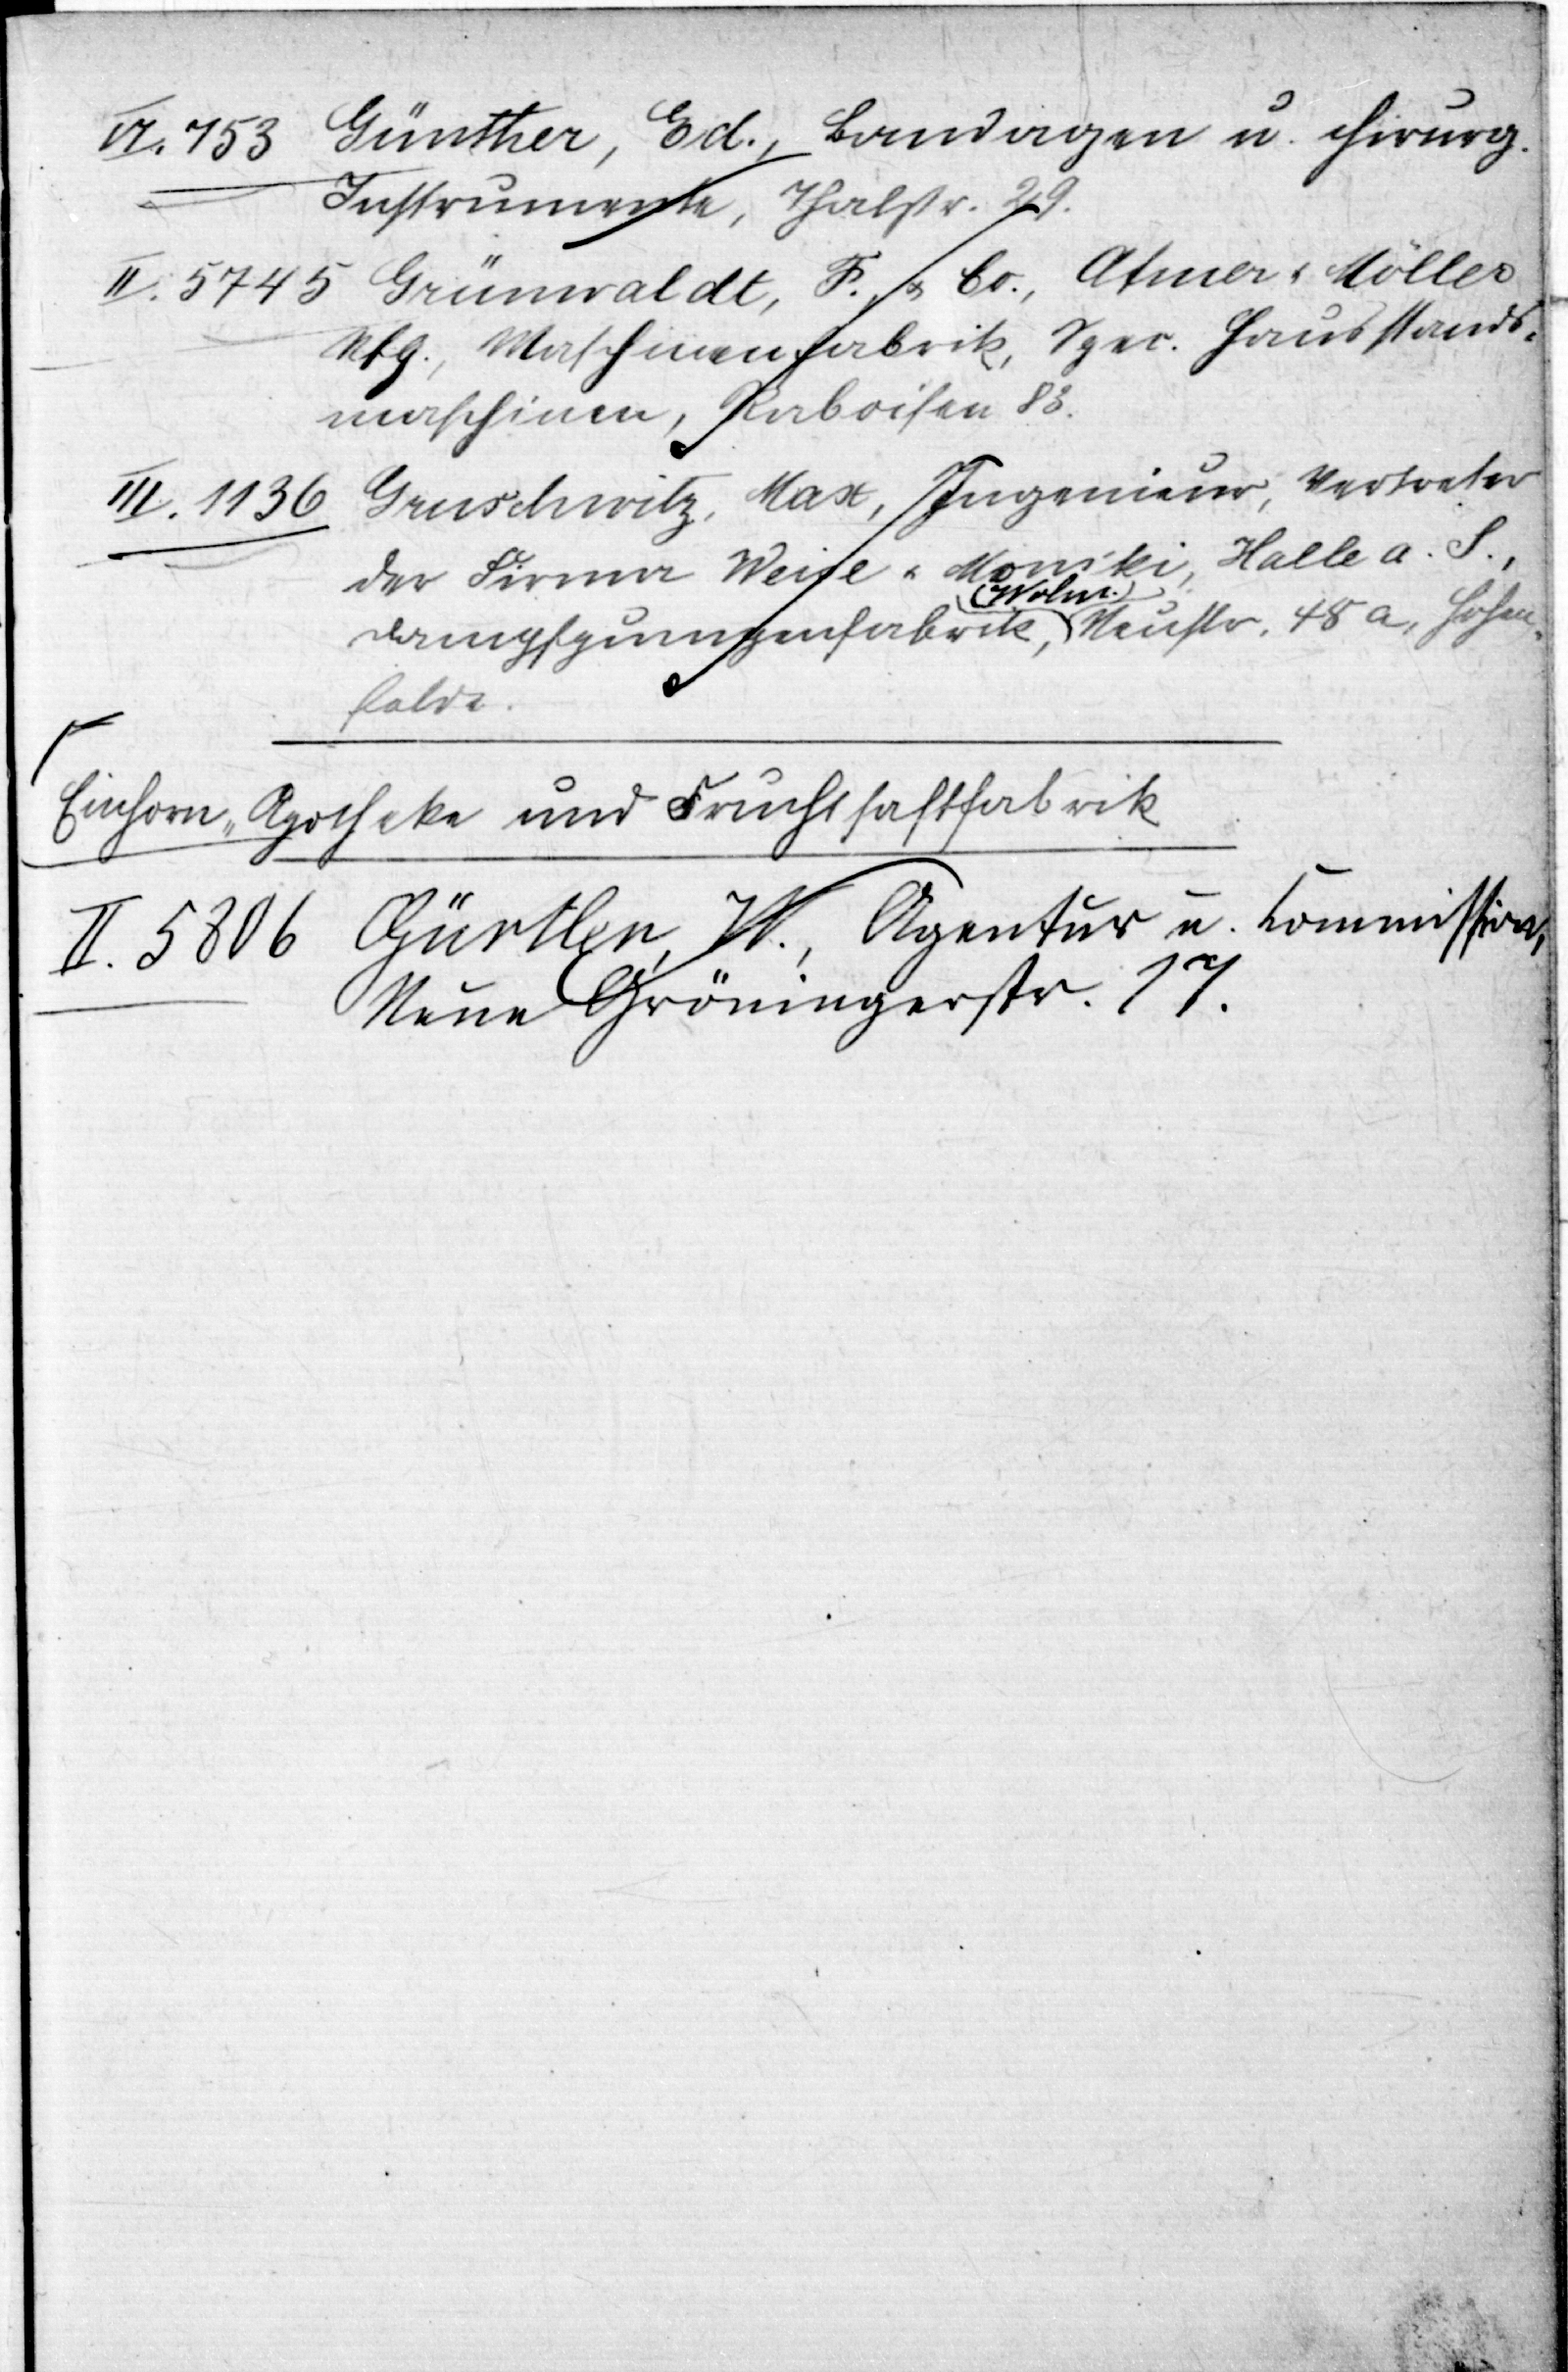 VI. 753 Günther, Ed., Bandagen u. chirurg.
Instrumente, Thalstr. 29.
II. 5745 Grünwaldt, F. & Co., Atmer & Möller
Nfg., Maschinenfabrik, Spec. Hausstands-
maschinen, Raboisen 83.
III. 1136 Gruschwitz, Max, Ingenieur, Vertreter
der Firma Weise & Monski, Halle a. S.,
(Wohn.)
Dampfpumpenfabrik, Neustr. 48 a, Hohen-
felde.
Einhorn-Apotheke und Fruchtsaftfabrik
II. 5806 Gürtler, W., Agentur u. Commission,
Neue Gröningerstr. 17.